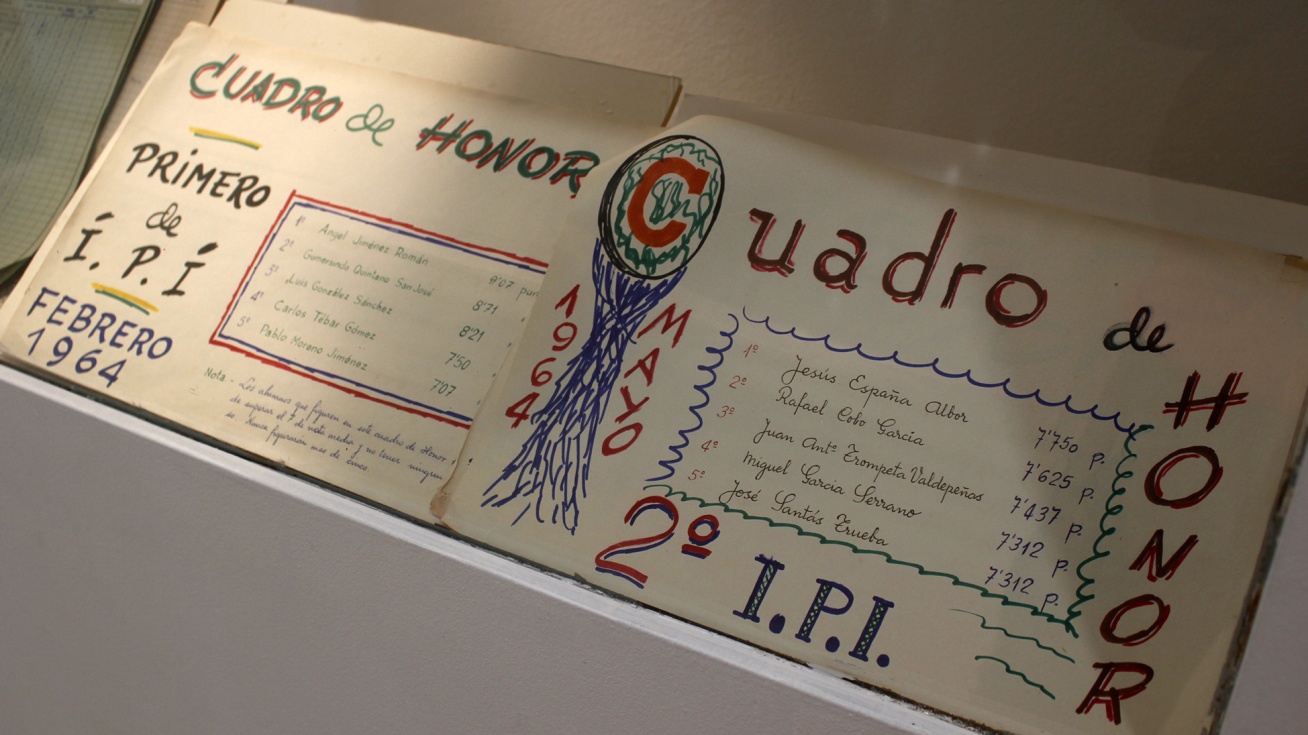 CUADRO de HONOR
PRiMERO
de
Í. P. Í
FEBRERO
1964
1º Angel Jiménez Román 9'07 pun
2º Gumersindo Quintano San José 8'71 "
3º Luis González Sánchez 8'21 "
4º Carlos Tébar Gómez 7'50 "
5º Pablo Moreno Jiménez 7'07 "
Nota - Los alumnos que figuren en este cuadro de Honor
de superar el 7 de nota media y no tener ningun
Nunca figuraran mas de cinco.
Cuadro de
HONOR
1964
MAYO
1º Jesús España Albor 7'750 p.
2º Rafael Cobo Garcia 7'625 p.
3º Juan Antº Trompeta Valdepeñas 7'437 p.
4º Miguel Garcia Serrano 7'312 p.
5º José Santás Trueba 7'312 p.
2º I.P.I.